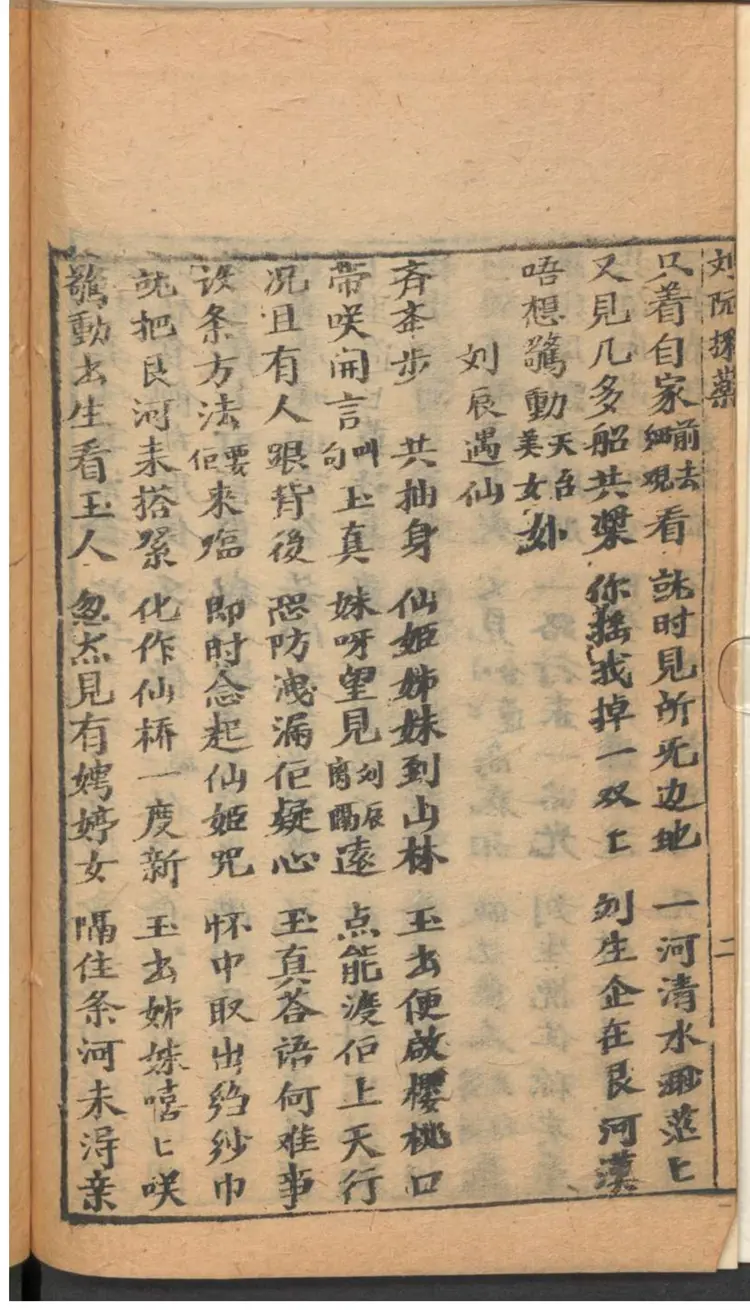 刘阮採藥
二
只着自家前去細覌看 就时見所无边地 一河清水淼茫〻
又見几多船共槳 你摇我掉一双〻 刘生企在艮河漢
唔想驚動天台美女娘
刘辰遇仙
齐奔步 共抽身 仙姬姊妹到山林 玉去便啟櫻桃口
带咲開言叫句玉真妹呀望見刘辰离隔遠 点能渡佢上天行
况且有人跟背後 恐防洩漏佢疑心 玉真荅语何难事
设条方法要佢來臨 即时念起仙姬咒 怀中取出縐纱巾
就把艮河来搭紧 化作仙桥一度新 玉去姊妹嘻〻咲
驚動去生看玉人 忽杰見有娉婷女 隔住条河未淂亲